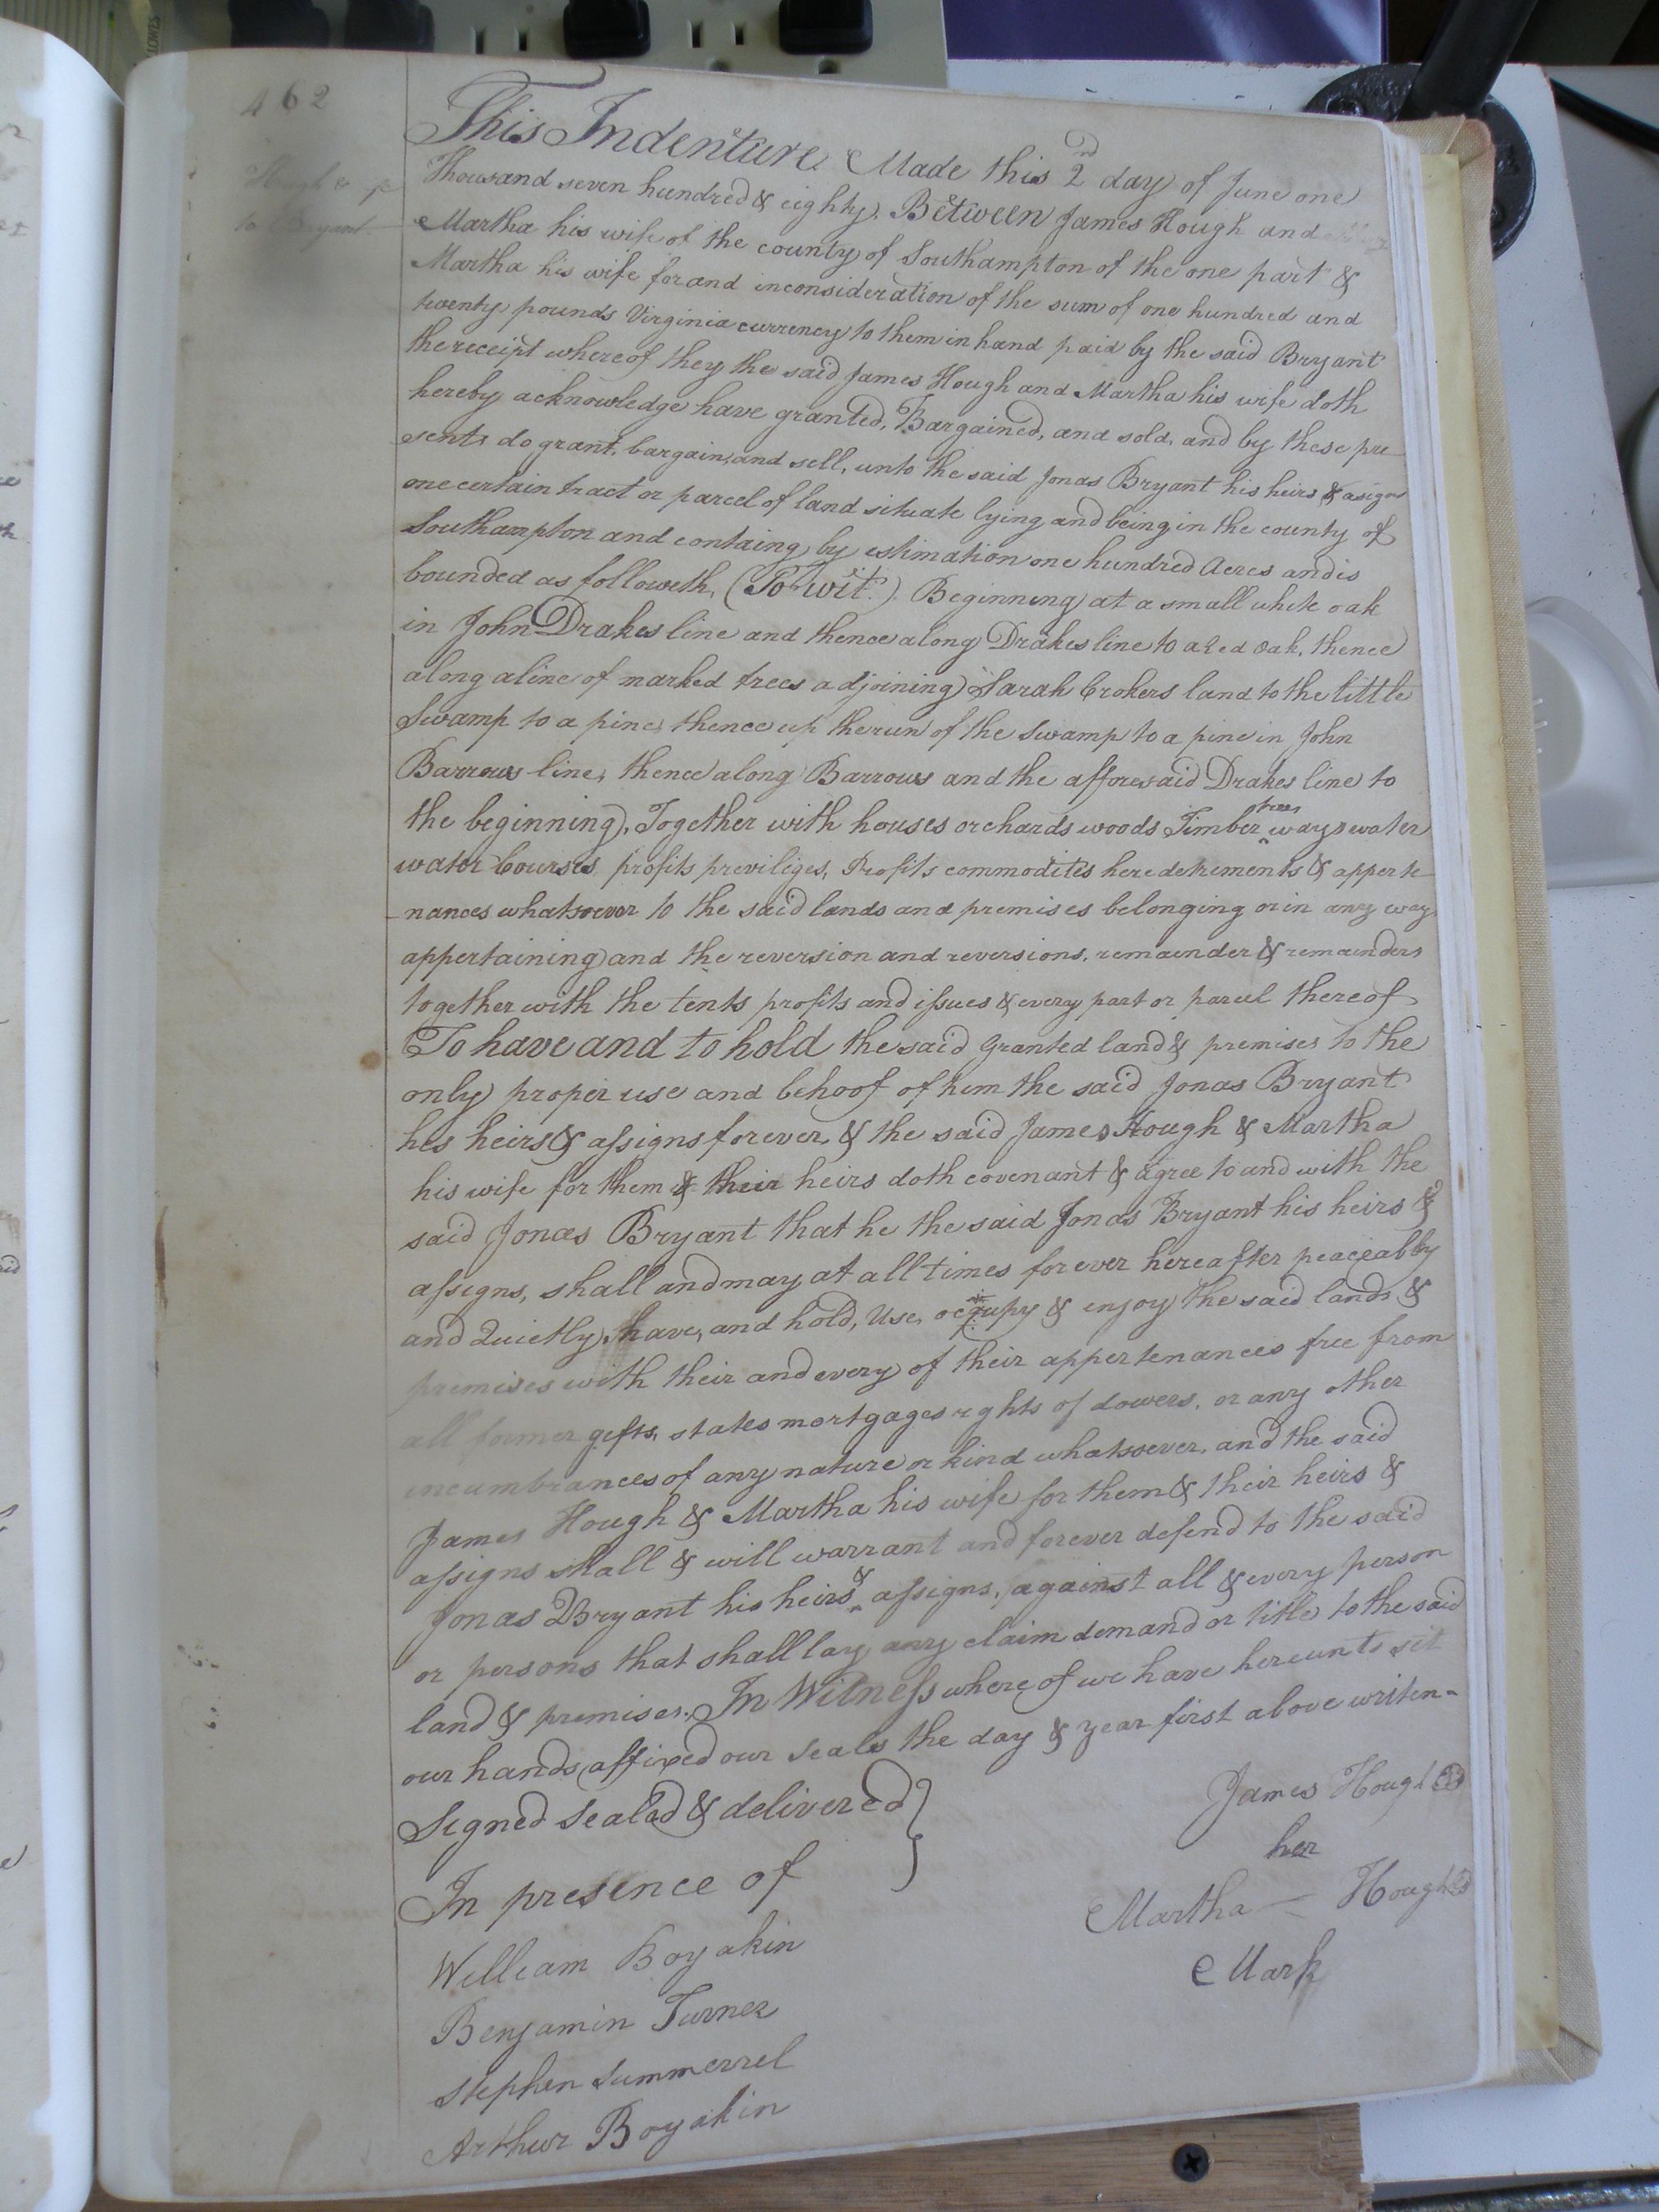 462
Hough & 
to Bryant
This Indenture Made this 2nd day of June one
Thousand seven hundred & eighty. Between James Hough and
Martha his wife of the county of Southampton of the one part &
Martha his wife for and in consideration of the sum of one hundred and
twenty pounds Virginia currency to them in hand paid by the said Bryant
the receipt whereof they the said James Hough and Martha his wife doth
hereby acknowledge have granted, Bargained, and sold, and by these pre
sents do grant, bargain, and sell, unto the said Jonas Bryant his heirs & asigns
one certain tract or parcel of land situate lying and being in the county of
Southampton and containg by estimation one hundred Acres and is
bounded as followeth, (To wit.) Beginning at a small white oak
in John Drakes line and thence along Drakes line to a Red oak, thence
along a line of marked trees adjoining Sarah Crokers land to the little
Swamp to a pine, thence up the run of the swamp to a pine in John
Barrows line, thence along Barrows and the afforesaid Drakes line to
the beginning, Together with houses orchards woods Timber trees ways water
water Courses profits previliges, Profits commodites heredetements & apperte
nances whatsoever to the said lands and premises belonging or in any way
appertaining and the reversion and reversions, remainder & remainders
together with the tents profits and issues & every part or parcel thereof
To have and to hold the said Granted land & premises to the
only proper use and behoof of him the said Jonas Bryant
his heirs & assigns forever, & the said James Hough & Martha
his wife for them & their heirs doth covenant & agree to and with the
said Jonas Bryant that he the said Jonas Bryant his heirs &
assigns, shall and may at all times for ever hereafter peaceably
and Quietly have, and hold, Use, occupy & enjoy the said lands &
premises with their and every of their appertenances free from
all former gifts, states mortgages rights of dowers, or any other
incumbrances of any nature or kind whatsoever, and the said
James Hough & Martha his wife for them & their heirs &
assigns shall & will warrant and forever defend to the said
Jonas Bryant his heirs & assigns, against all & every person
or persons that shall lay any claim demand or title to the said
land & premises. In Witness where of we have hereunto set
our hands affixed our seals the day & year first above writen
Signed Sealed & delivered
In presence of
James Hough
her
Martha — Hough
Mark
William Boyakin
Benjamin Turner
Stephen Summerrel
Arthur Boyakin